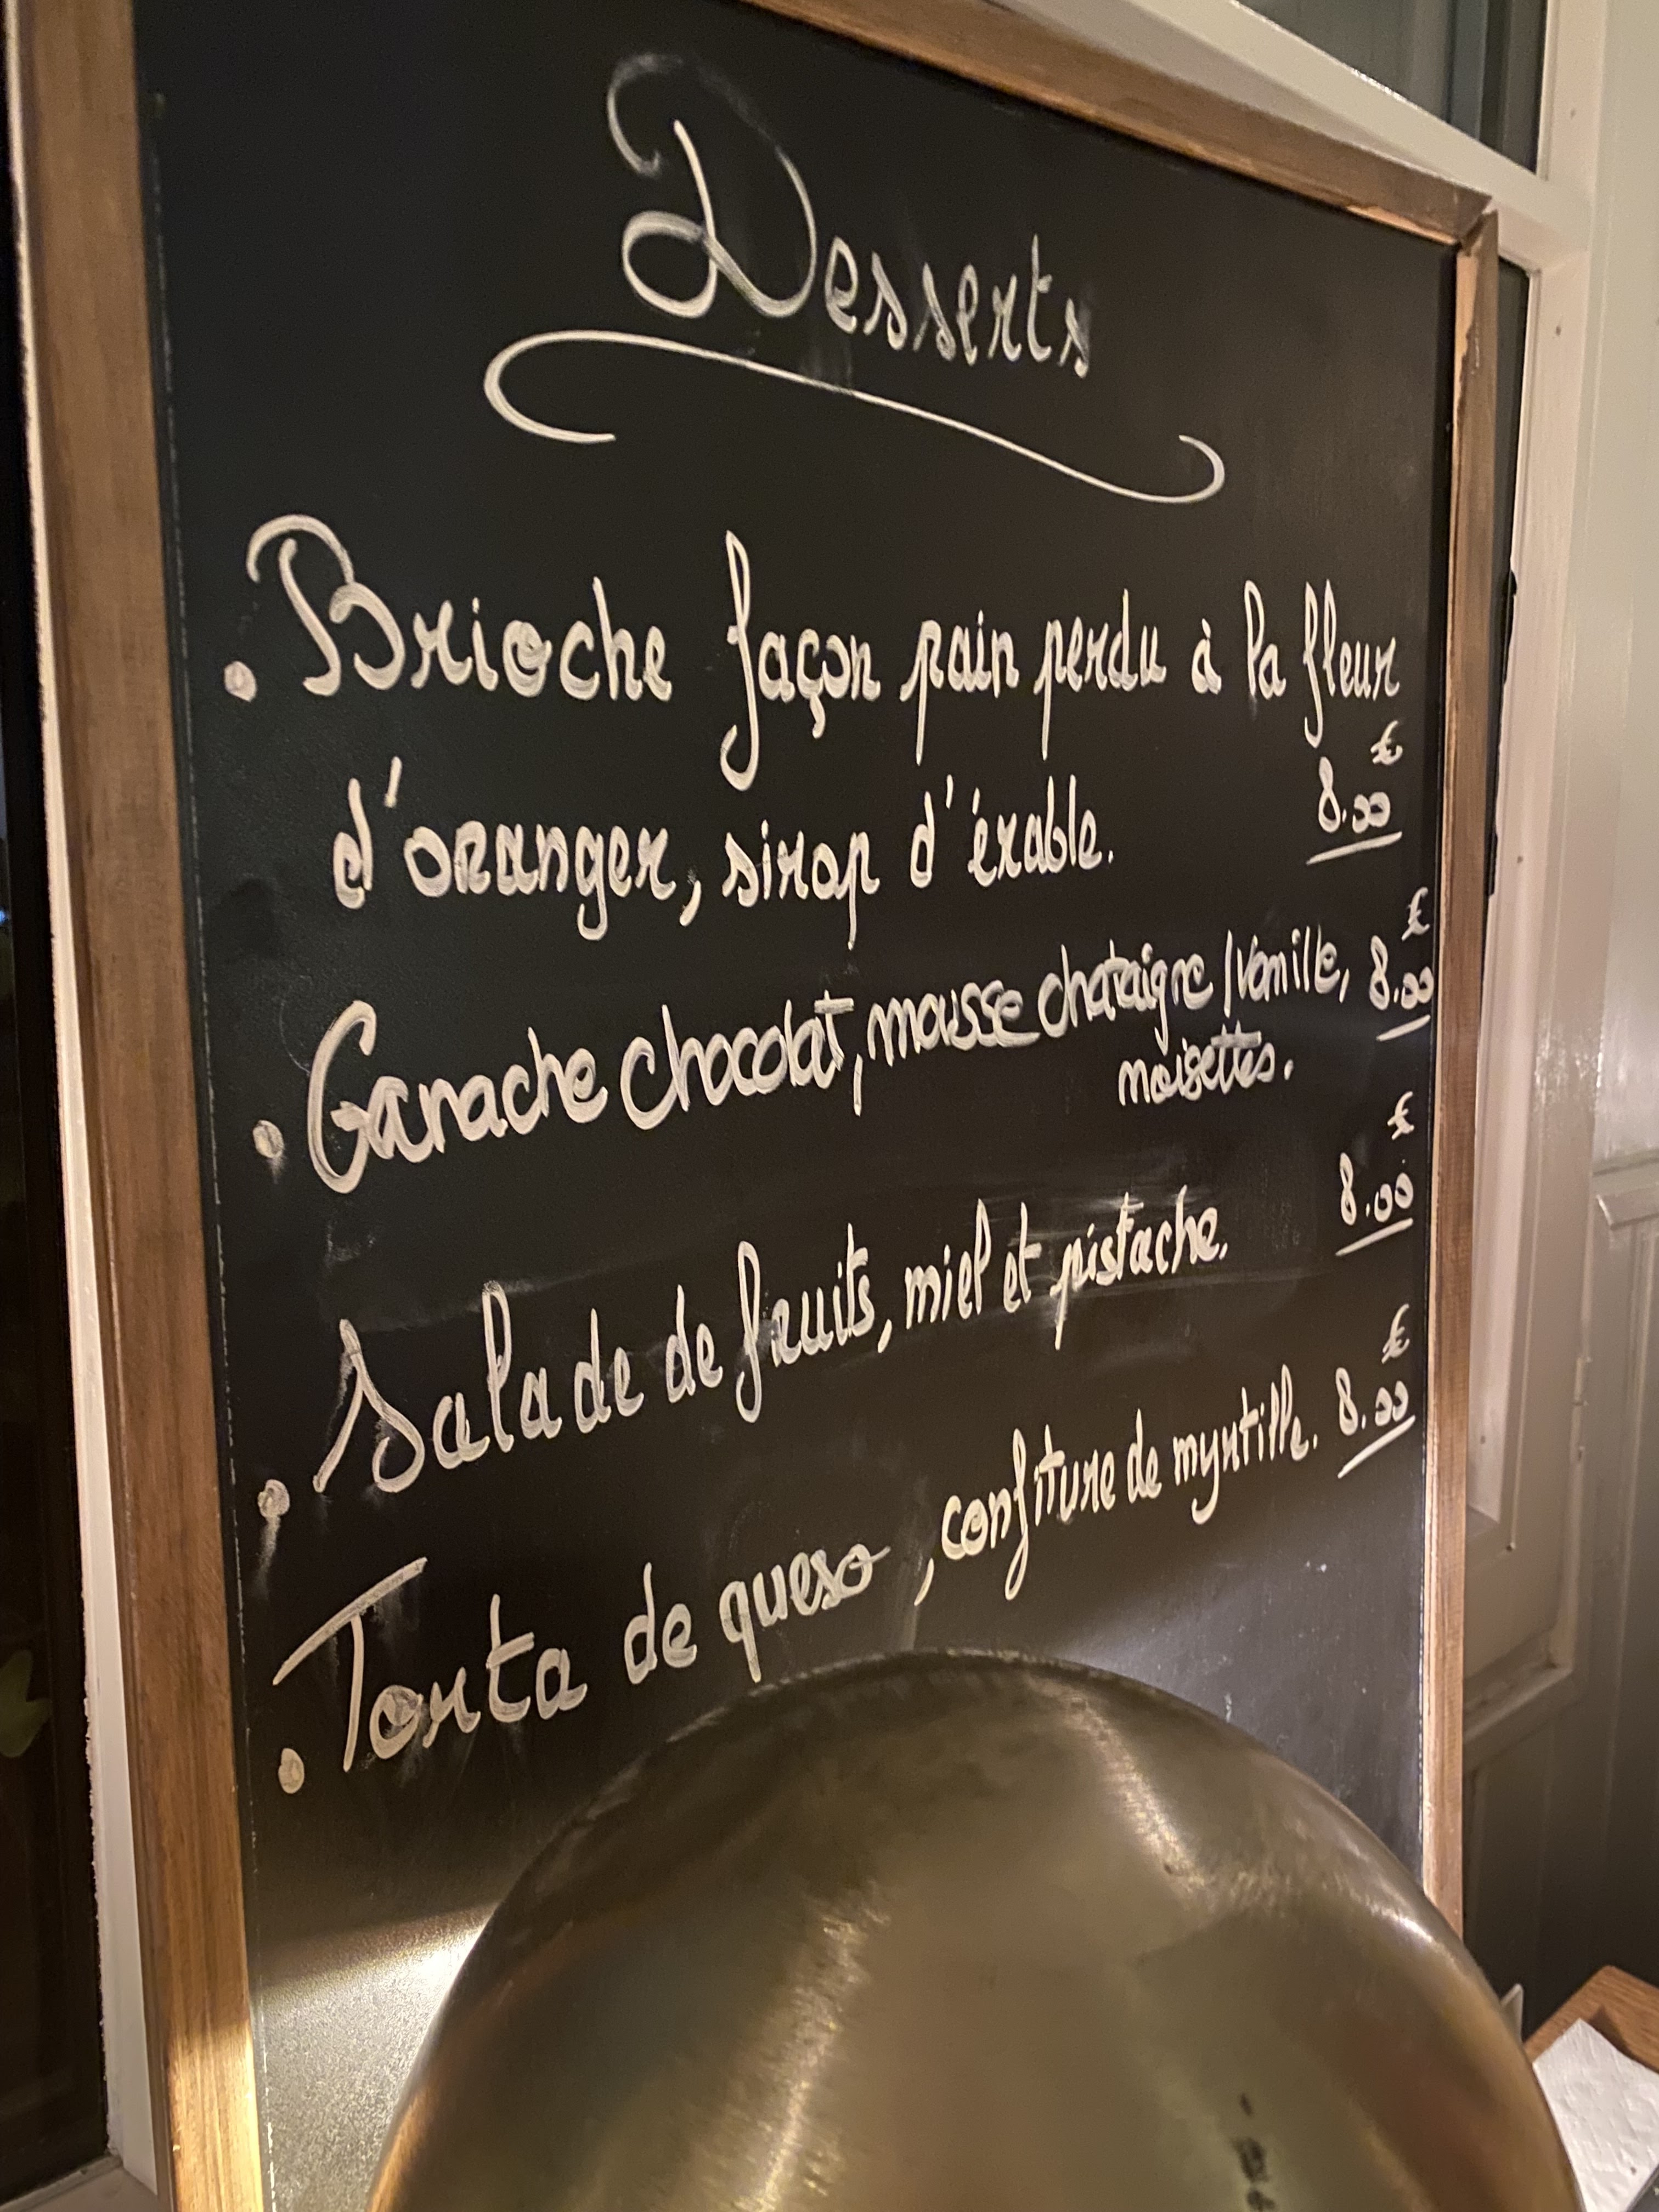 Desserts
. Brioche façon pain perdu à la fleur
d'oranger, sirop d'érable. 8.00 €
. Ganache chocolat, mousse chataigne / Vanille, 8.00 €
noisettes.
. Salade de fruits, miel et pistache. 8.00 €
. Torta de queso, confiture de myrtille. 8.00 €